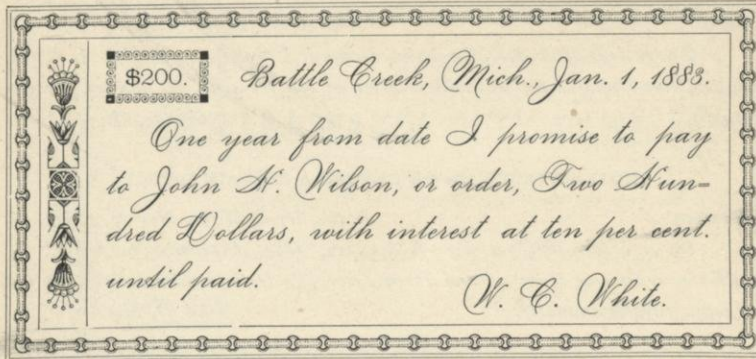 $200. Battle Creek, Mich., Jan. 1, 1883.
One year from date I promise to pay
to John H. Wilson, or order, Two Hun-
dred Dollars, with interest at ten per cent.
until paid.
W. C. White.